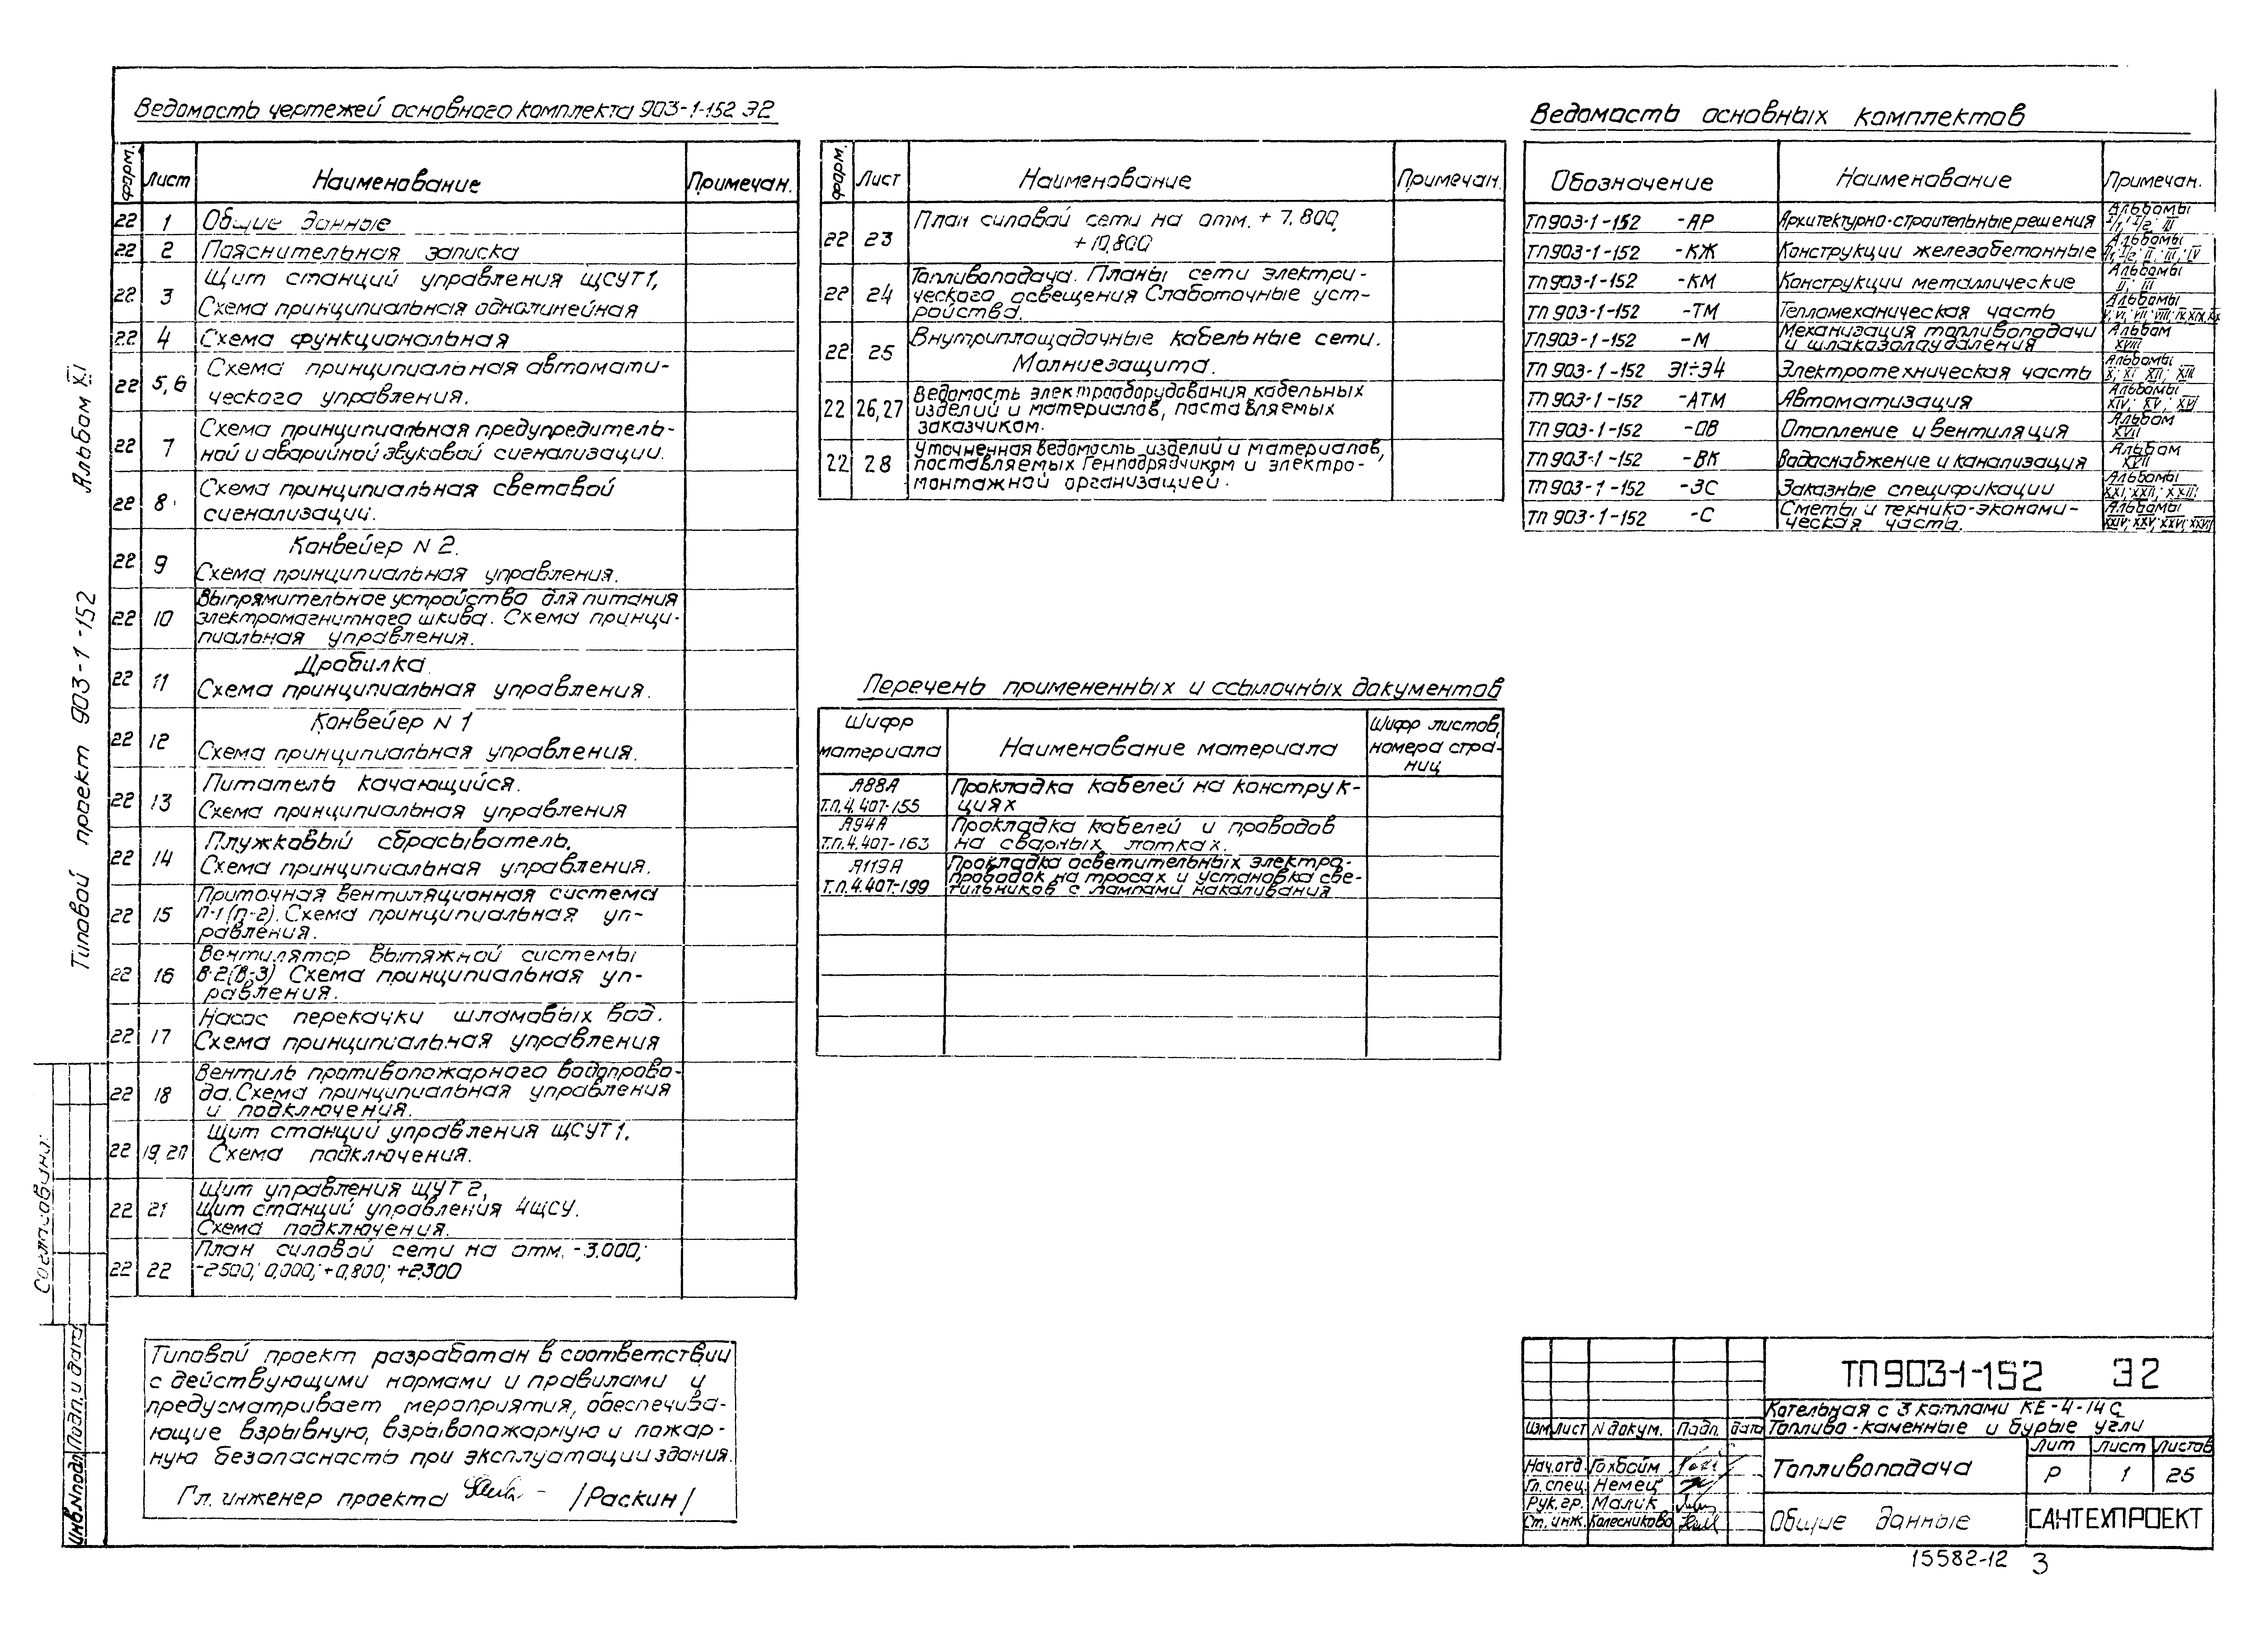 Ведомость чертежей основного комплекта 903-1-152 Э2
форм. Лист Наименование Примечан.
22 1 Общие данные
22 2 Пояснительная записка
22 3 Щит станций управления ЩСУТ1,
Схема принципиальная однолинейная
22 4 Схема функциональная
22 5,6 Схема принципиальная автомати-
ческого управления.
22 7 Схема принципиальная предупредитель-
ной и аварийной звуковой сигнализации.
22 8 Схема принципиальная световой
сигнализации.
22 9 Конвейер N 2.
Схема принципиальная управления.
22 10 Выпрямительное устройство для питания
электромагнитного шкива. Схема принци-
пиальная управления.
22 11 Дробилка.
Схема принципиальная управления.
22 12 Конвейер N 1
Схема принципиальная управления.
22 13 Питатель качающийся.
Схема принципиальная управления
22 14 Плужковый сбрасыватель.
Схема принципиальная управления.
22 15 Приточная вентиляционная система
П-1(П-2). Схема принципиальная уп-
равления.
22 16 Вентилятор вытяжной системы
В-2(В-3) Схема принципиальная уп-
равления.
22 17 Насос перекачки шламовых вод.
Схема принципиальная управления
22 18 Вентиль противопожарного водопрово-
да. Схема принципиальная управления
и подключения.
22 19,20 Щит станций управления ЩСУТ1.
Схема подключения.
22 21 Щит управления ЩУТ2,
Щит станций управления 4ЩСУ.
Схема подключения.
22 22 План силовой сети на отм. -3.000;
-2500; 0,000; +0,800; +2300
форм. Лист Наименование Примечан.
22 23 План силовой сети на отм. + 7.800,
+10,800
22 24 Топливоподача. Планы сети электри-
ческого освещения Слаботочные уст-
ройства.
22 25 Внутриплощадочные кабельные сети.
Молниезащита.
22 26,27 Ведомость электрооборудования, кабельных
изделий и материалов, поставляемых
заказчиком.
22 28 Уточненная ведомость изделий и материалов,
поставляемых Генподрядчиком и электро-
монтажной организацией.
Перечень примененных и ссылочных документов
Шифр материала Наименование материала Шифр листов, номера стра-
ниц
А88А
Т.П.4.407-155 Прокладка кабелей на конструк-
циях
А94А
Т.П.4.407-163 Прокладка кабелей и проводов
на сварных лотках.
А119А
Т.П.4.407-199 Прокладка осветительных электро-
проводок на тросах и установка све-
тильников с лампами накаливания
Ведомость основных комплектов
Обозначение Наименование Примечан.
ТП903-1-152 -АР Архитектурно-строительные решения Альбомы
ТП903-1-152 -КЖ Конструкции железобетонные Альбомы
ТП903-1-152 -КМ Конструкции металлические Альбомы
II; III
ТП903-1-152 -ТМ Тепломеханическая часть Альбомы
ТП903-1-152 -М Механизация топливоподачи
и шлакозолоудаления Альбом
XVIII
ТП903-1-152 Э1÷Э4 Электротехническая часть Альбомы
X; XI; XII; XIII
ТП903-1-152 -АТМ Автоматизация Альбомы
XIV; XV; XVI
ТП903-1-152 -ОВ Отопление и вентиляция Альбом
XVII
ТП903-1-152 -ВК Водоснабжение и канализация Альбом
XVII
ТП903-1-152 -ЗС Заказные спецификации Альбомы
XXI; XXII; XXIII
ТП903-1-152 -С Сметы и технико-экономи-
ческая часть. Альбомы
XXIV; XXV; XXVI; XXVII
Альбом XI
Типовой проект 903-1-152
Согласовано:
Инв.Nподл. Подп. и дата
Типовой проект разработан в соответствии
с действующими нормами и правилами и
предусматривает мероприятия, обеспечива-
ющие взрывную, взрывопожарную и пожар-
ную безопасность при эксплуатации здания.
Гл. инженер проекта /Раскин/
ТП903-1-152 Э2
Котельная с 3 котлами КЕ-4-14С
Топливо-каменные и бурые угли
Изм Лист N докум. Подп. дата
Нач.отд. Гохбойм
Гл. спец. Немец
Рук. гр. Малик
Ст. инж. Колесникова
Топливоподача
Лит Лист Листов
Р 1 25
Общие данные
САНТЕХПРОЕКТ
15582-12 3